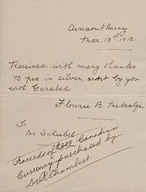 Mar. 13th 1912.
Received with many thanks
70 prs in silver, sent by you
with Garabed.
Florence B.
To
Mr Schubel
Proceeds of Canadian
Currency purchased by
Dr Chambers.